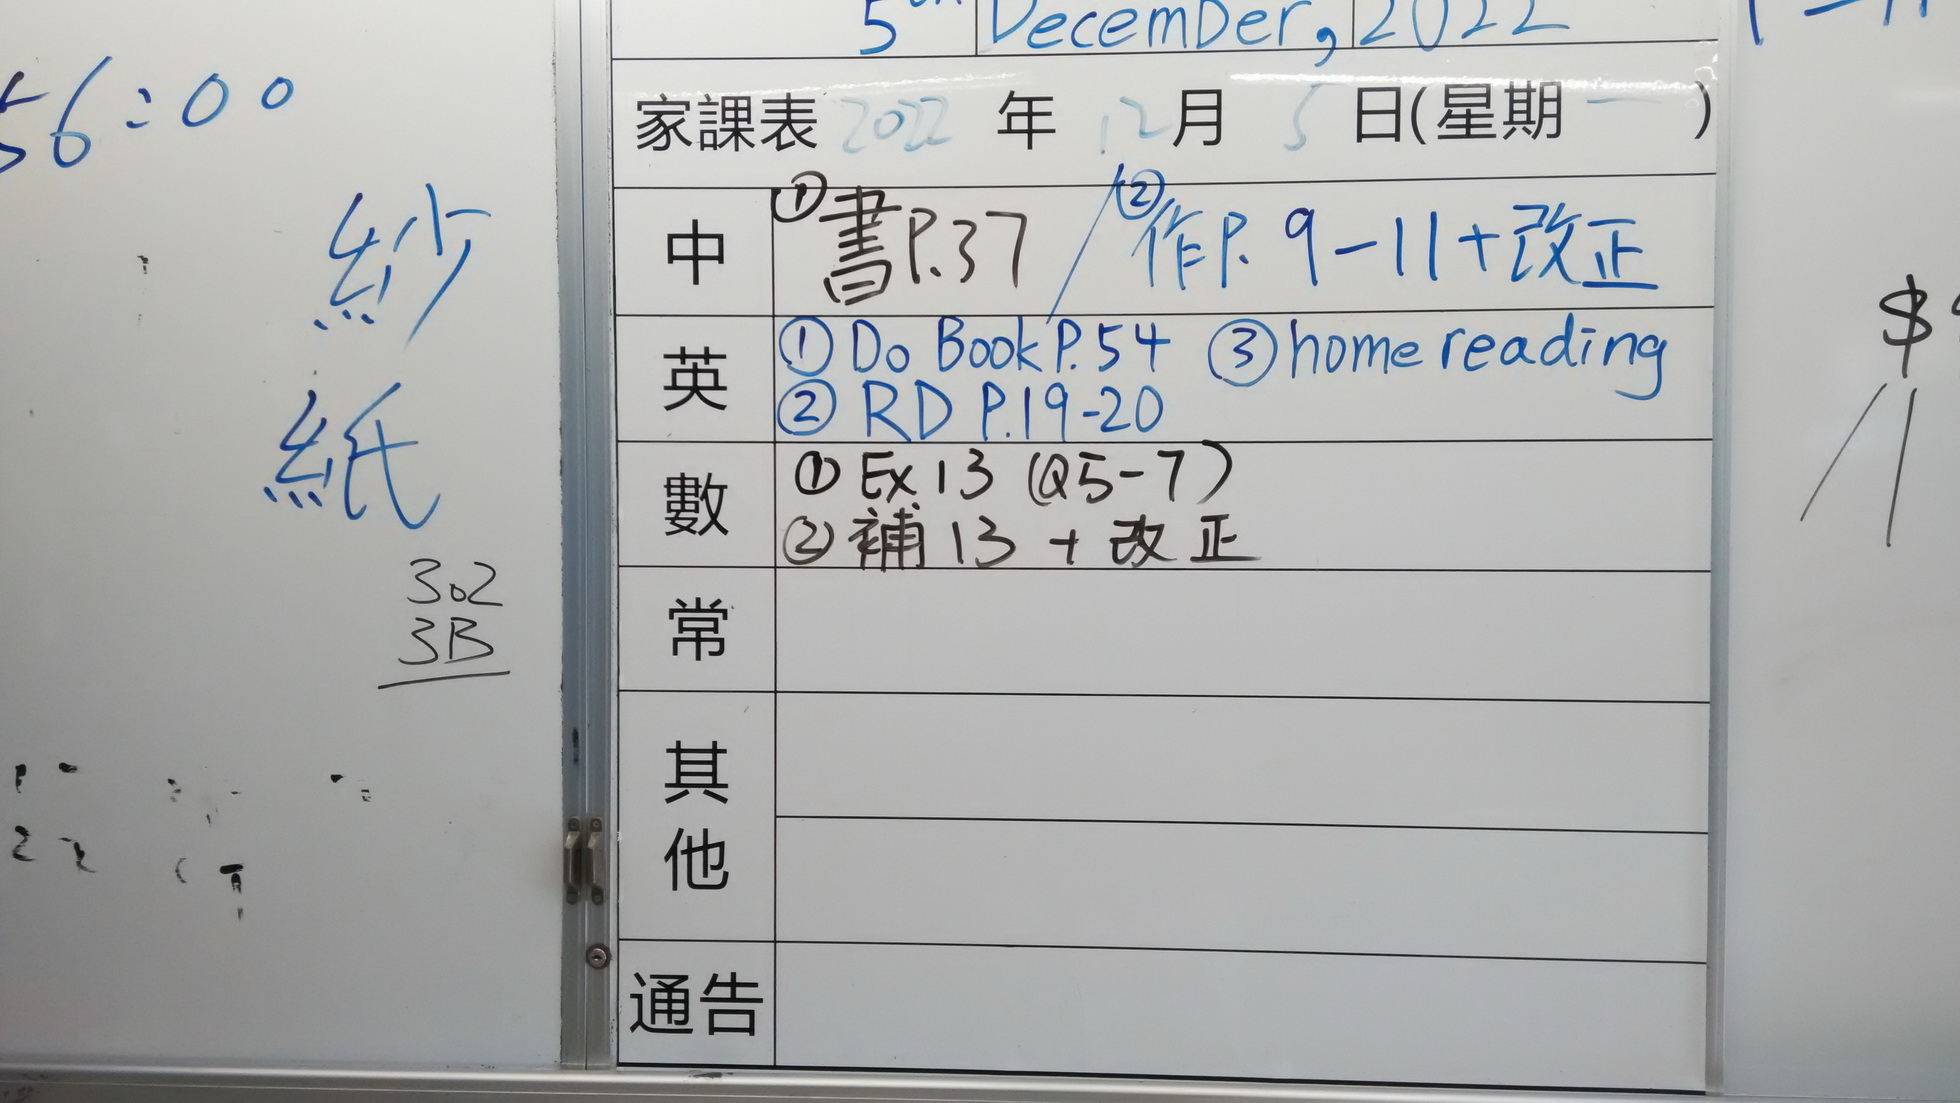 5th December, 2022
56:00
紗
紙
302
3B
家課表 2022 年 12 月 5 日(星期 一 )
中 ① 書P.37 / ② 作P. 9-11+改正
英 ① Do Book P.54 ③ home reading
② RD P.19-20
數 ① Ex 13 (Q5-7)
② 補 13 + 改正
常
其他
通告
$